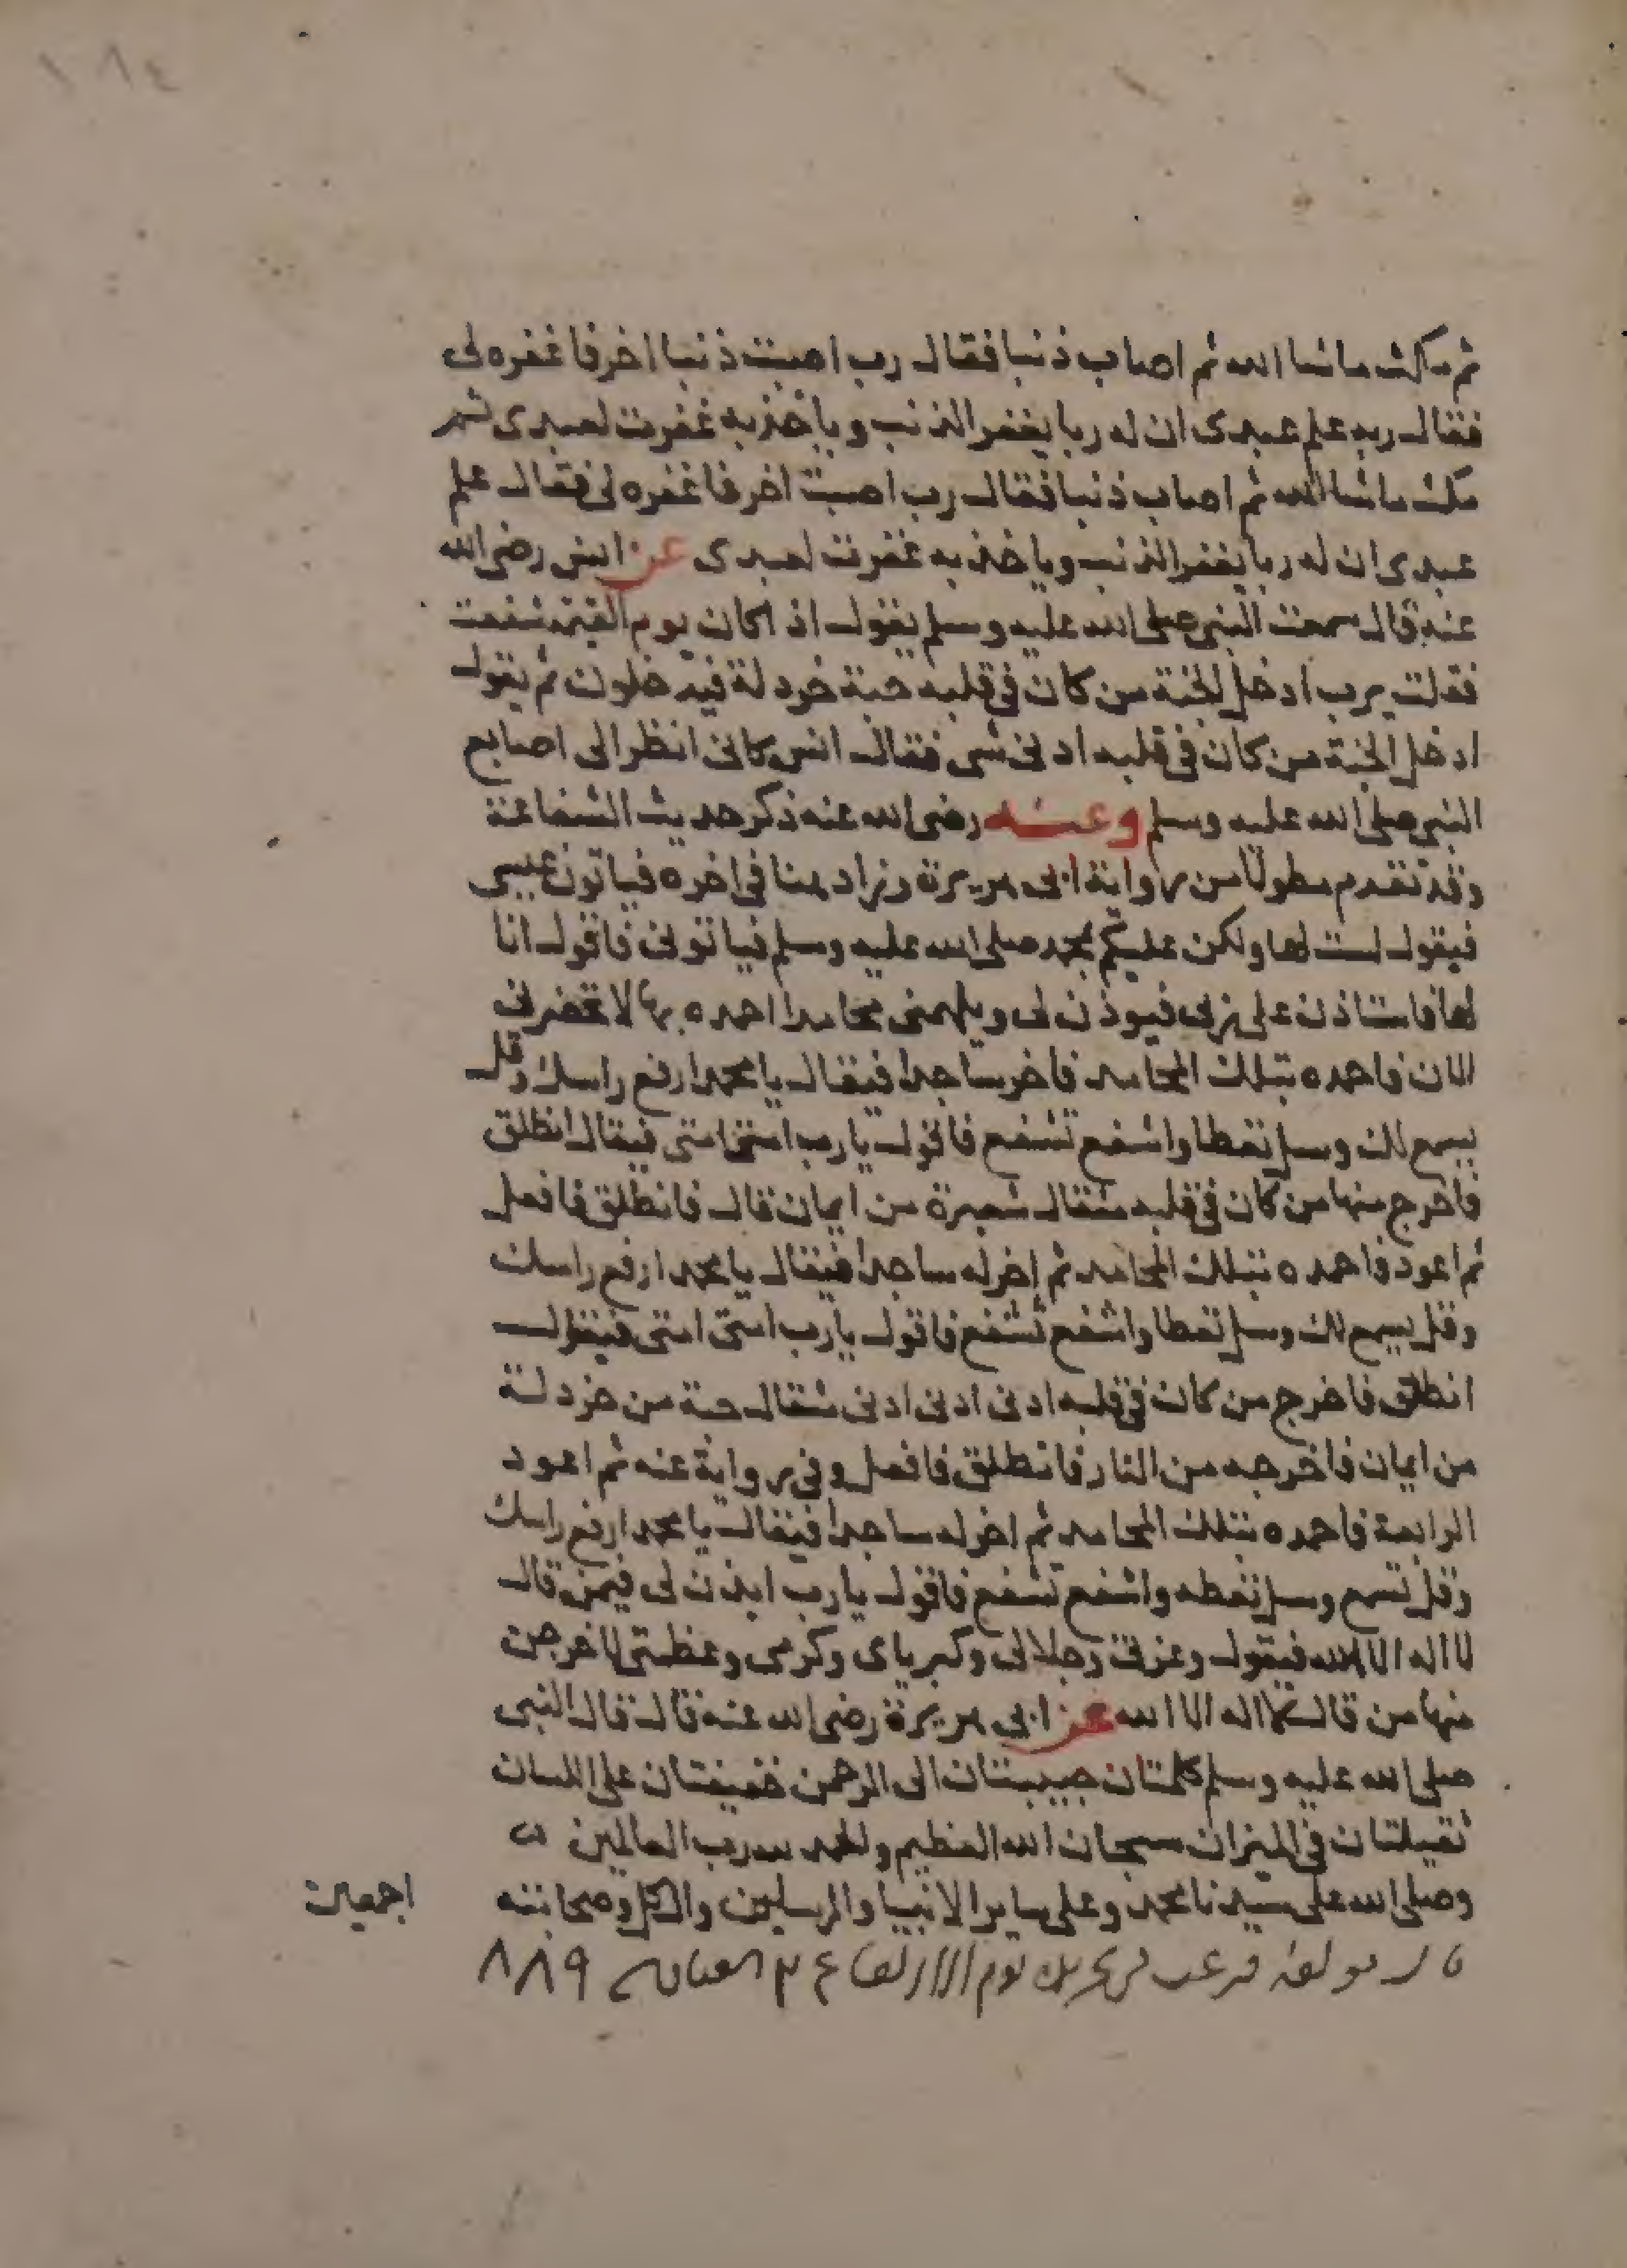 ١٨٤
ثم مكث ماشا الله ثم اصاب ذنبا فقال رب اصبت ذنبا اخر فاغفره لى
فقال ربه علم عبدى ان له ربا يغفر الذنب وياخذ به غفرت لعبدى ثم
مكث ماشا الله ثم اصاب ذنبا فقال رب اصبت اخر فاغفره لى فقال علم
عبدى ان له ربا يغفر الذنب وياخذ به غفرت لعبدى عن انس رضى الله
عنه قال سمعت النبى صلى الله عليه وسلم يقول اذا كان يوم القيمة شفعت
فقلت يرب ادخل الجنة من كان فى قلبه حبة خردلة فيدخلون ثم يقول
ادخل الجنة من كان فى قلبه ادنى شى فقال انس كانى انظر الى اصابع
النبى صلى الله عليه وسلم وعنه رضى الله عنه ذكر حديث الشفاعة
وقد تقدم مطولا من رواية ابى هريرة وزاد هنا فى اخره فياتون عيسى
فيقول لست لها ولكن عليكم بمحمد صلى الله عليه وسلم فياتونى فاقول انا
لها فاستاذن على ربى فيوذن لى ويلهمنى محامدا احمده بها لا تحضرنى
الان فاحمده بتلك المحامد فاخر ساجدا فيقال يا محمد ارفع راسك وقل
يسمع لك وسل تعطا واشفع تشفع فاقول يا رب امتى امتى فيقال انطلق
فاخرج منها من كان فى قلبه مثقال شعيرة من ايمان قال فانطلق فافعل
ثم اعود فاحمده بتلك المحامد ثم اخر له ساجدا فيقال يا محمد ارفع راسك
وقل يسمع لك وسل تعطا واشفع تشفع فاقول يا رب امتى امتى فيقول
انطلق فاخرج من كان فى قلبه ادنى ادنى ادنى مثقال حبة من خردلة
من ايمان فاخرجه من النار فانطلق فافعل وفى رواية عنه ثم اعود
الرابعة فاحمده بتلك المحامد ثم اخر له ساجدا فيقال يا محمد ارفع راسك
وقل تسمع وسل تعطه واشفع تشفع فاقول يا رب ايذن لى فيمن قال
لا اله الا الله فيقول وعزتى وجلالى وكبرياى وكرمى وعظمتى لاخرجن
منها من قال لا اله الا الله عن ابى هريرة رضى الله عنه قال قال النبى
صلى الله عليه وسلم كلمتان حبيبتان الى الرحمن خفيفتان على اللسان
ثقيلتان فى الميزان سبحان الله العظيم والحمد لله رب العالمين
وصلى الله على سيدنا محمد وعلى ساير الانبيا والمرسلين وال كل وصحابته اجمعين
يوم ٨٨٩